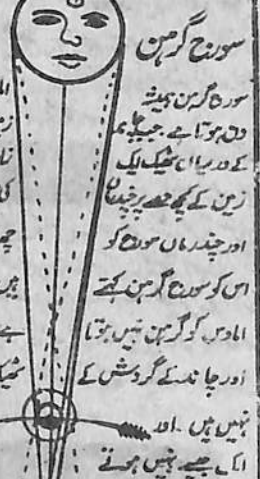 سورج گرہن
سورج گرہن ہمیشہ
دن ہوتا ہے۔ جبکہ
کے درمیان ٹھیک ایک
زمین کے کچھ حصے پر
اور چندرماں سورج کو
اس کو سورج گرہن کہتے
اماوس کو گرہن نہیں ہوتا
اور چاند کے گردش کے
نہیں ہیں۔ اور
ایک جیسے نہیں ہوتے